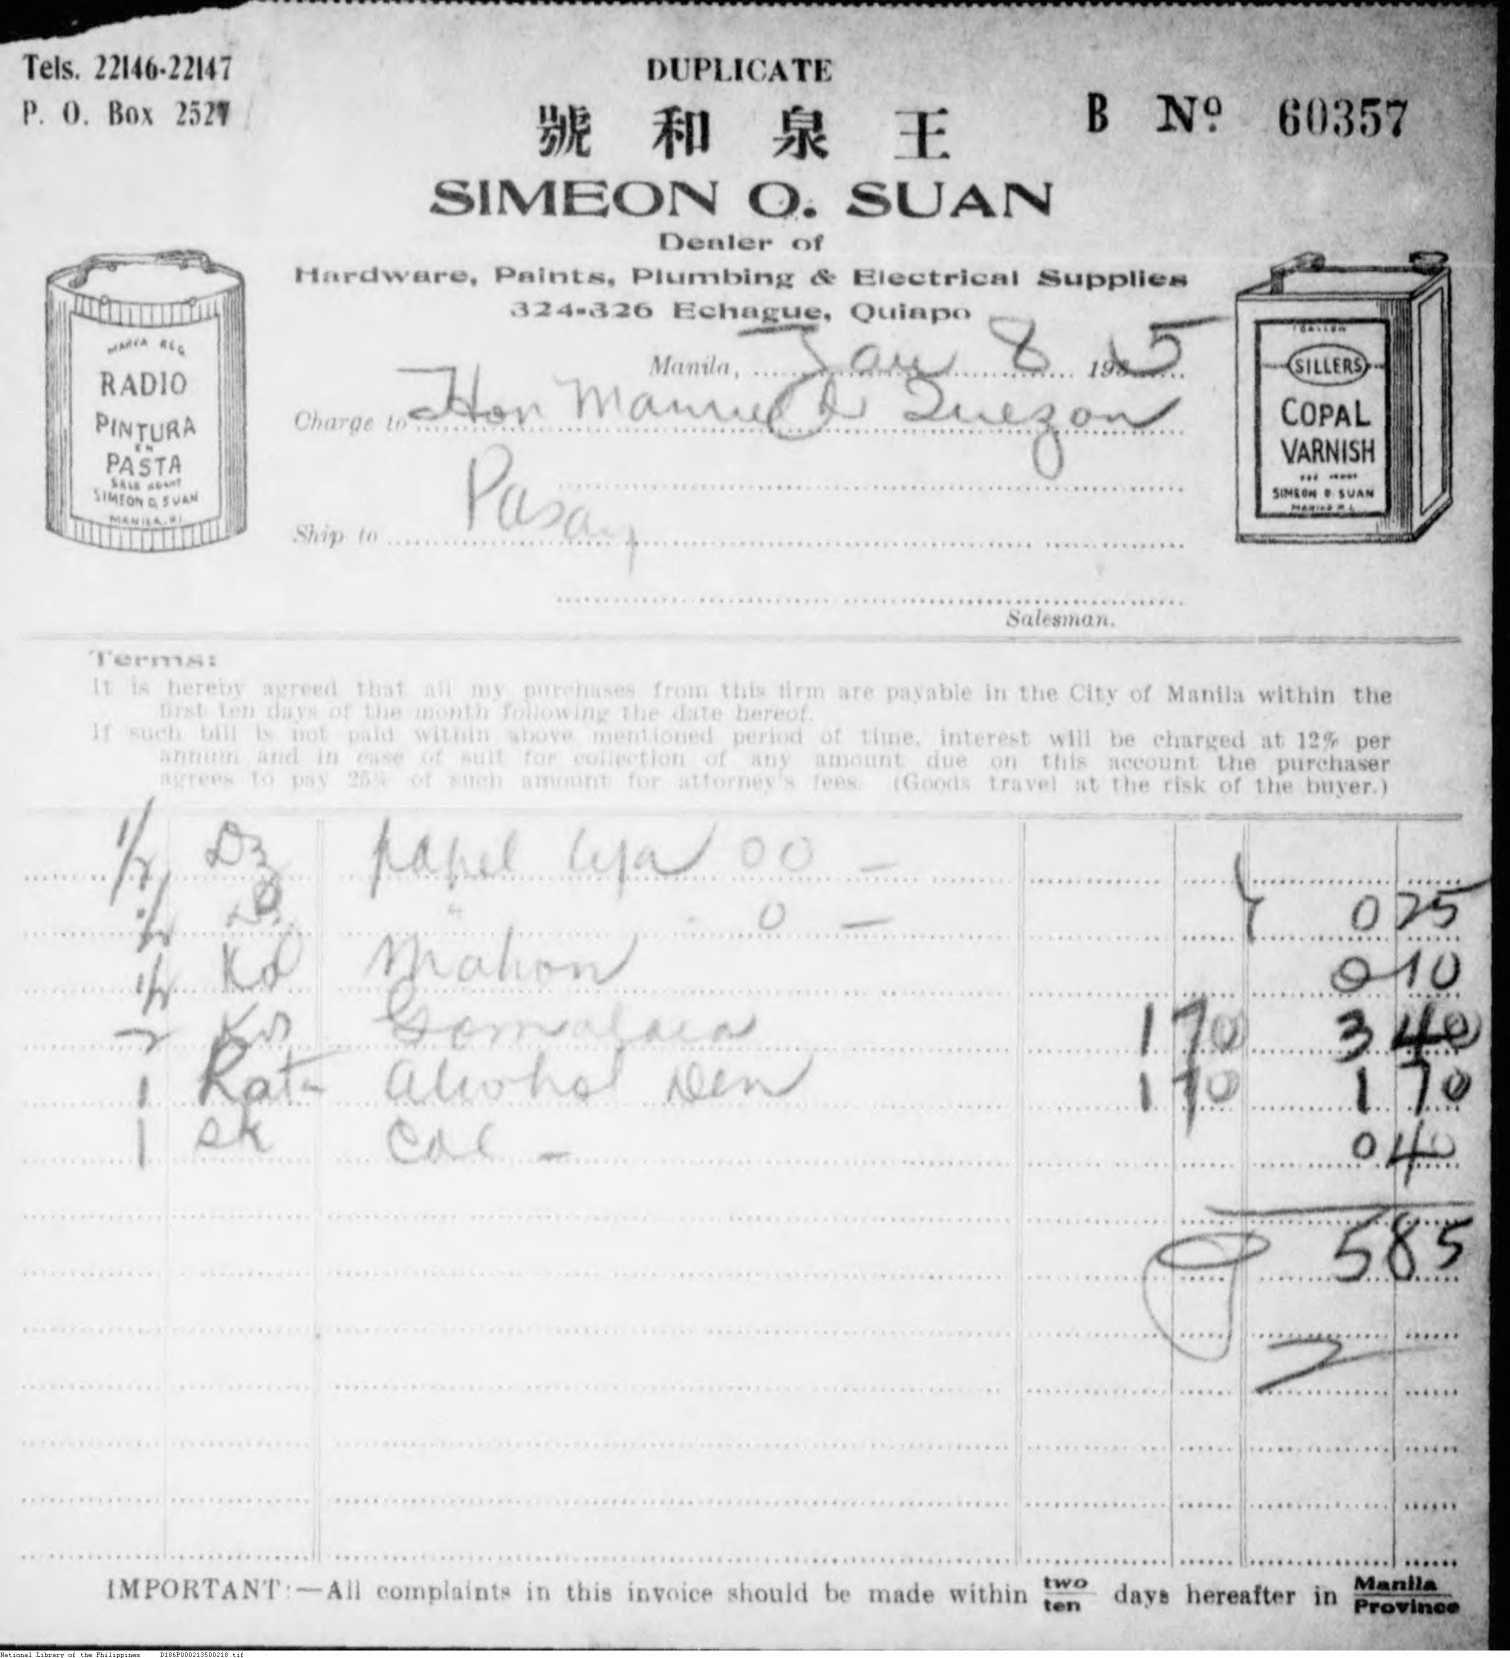 Tels. 22146-22147
P. O. Box 2527
DUPLICATE
B Nº 60357
號 和 泉 王
SIMEON O. SUAN
Dealer of
Hardware, Paints, Plumbing & Electrical Supplies
324-326 Echague, Quiapo
Manila, Jan 8 1935
Charge to Hon Manuel Quezon
Pasay
Ship to
Salesman.
MARCA REG
RADIO
PINTURA
EN
PASTA
SOLE AGENT
SIMEON O. SUAN
MANILA, P.I.
1 GALLON
SILLERS
COPAL
VARNISH
SIMEON O. SUAN
MANILA P.I.
Terms:
It is hereby agreed that all my purchases from this firm are payable in the City of Manila within the
first ten days of the month following the date hereof.
If such bill is not paid within above mentioned period of time, interest will be charged at 12% per
annum and in case of suit for collection of any amount due on this account the purchaser
agrees to pay 25% of such amount for attorney's fees. (Goods travel at the risk of the buyer.)
1/2 Dz papel lija 00 —
1/2 Dz " 0 — 0 25
1/2 Ko Mahon 0 10
2 Ks Gomalaca 1 70 3 40
1 Lata Alcohol Den 1 70 1 70
1 sk Cal — 0 40
5 85
IMPORTANT:—All complaints in this invoice should be made within two/ten days hereafter in Manila/Province
National Library of the Philippines D186P000213500218.tif